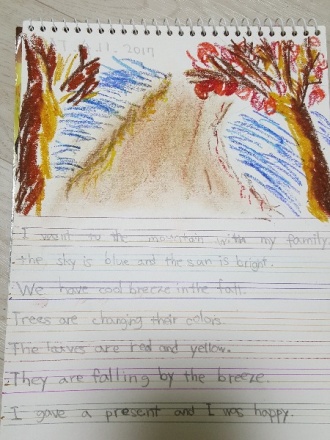 11. 2017
I want to the mountain with my family
the sky is blue and the sun is bright.
We have cool breeze in the fall.
Trees are changing their colors.
The leaves are red and yellow.
They are falling by the breeze.
I gave a present and I was happy.